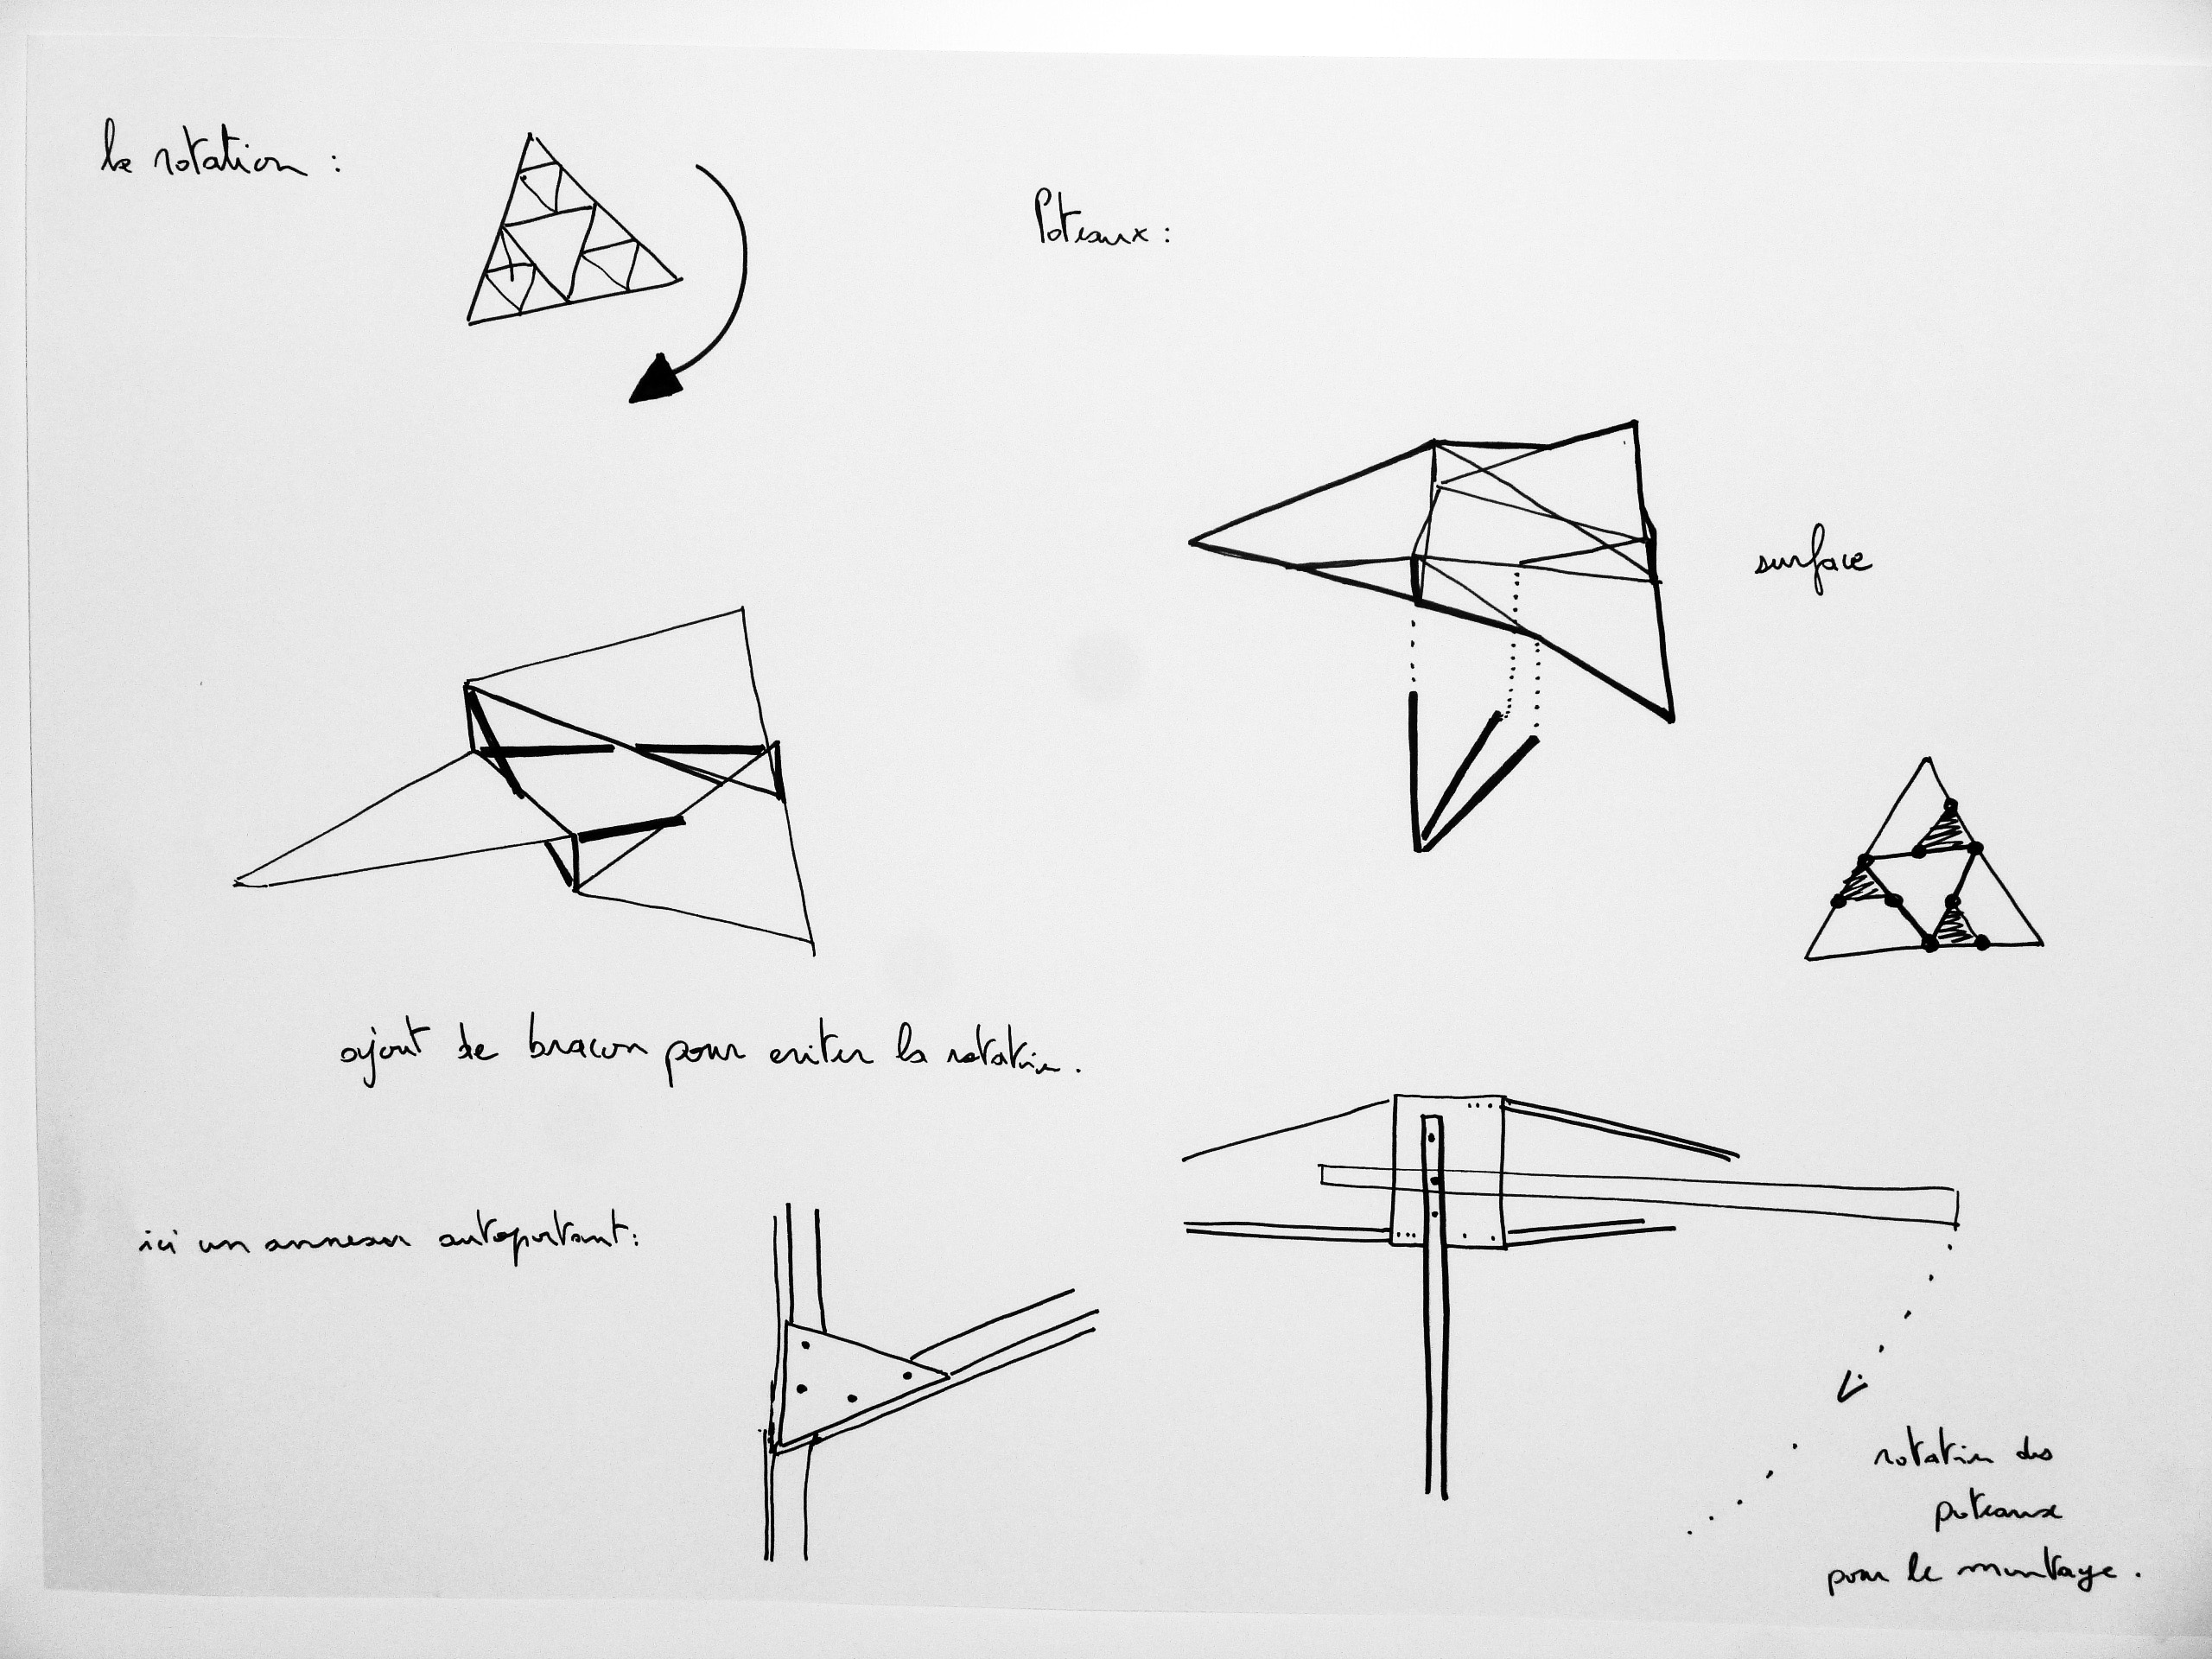 la rotation :
Poteaux :
surface
ajout de bracon pour eviter la rotation.
ici un anneau autoportant :
rotation des
poteaux
pour le montage.